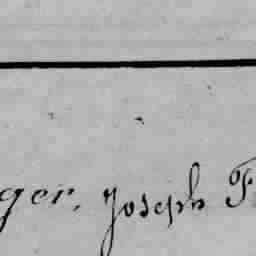 ger, Joseph F